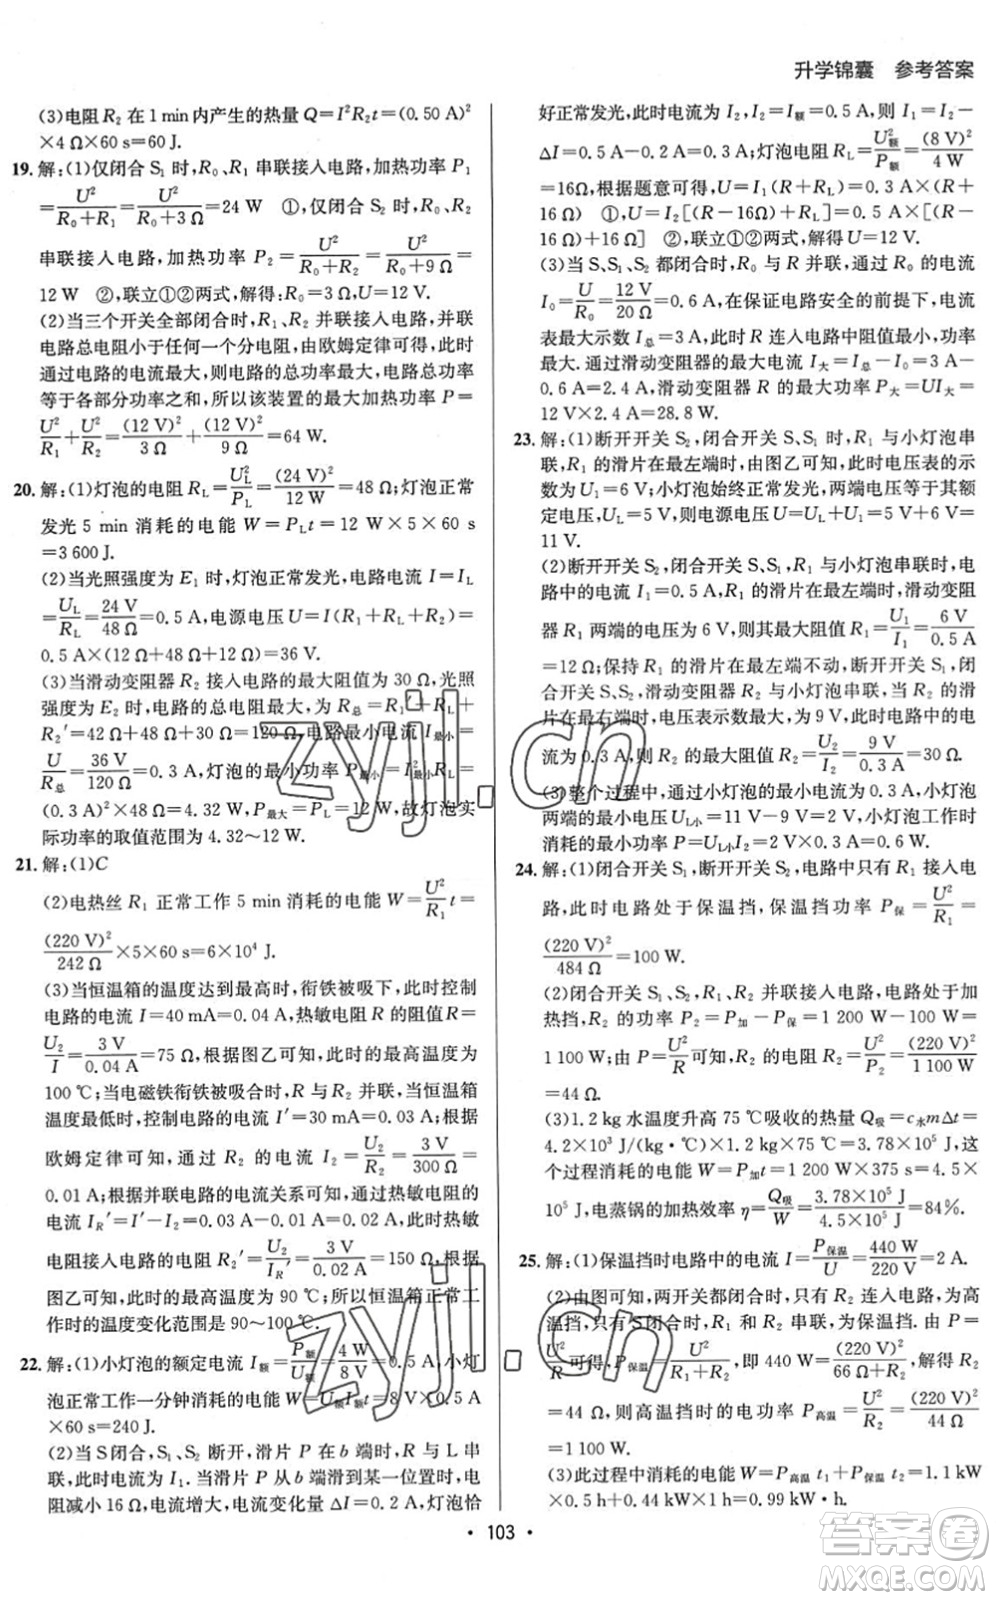 升学锦囊 参考答案
(3)电阻 R₂ 在 1 min内产生的热量 Q=I²R₂t=(0.50 A)²
×4 Ω×60 s=60 J.
19. 解:(1)仅闭合 S₁ 时,R₀、R₁ 串联接入电路,加热功率 P₁
=U²/(R₀+R₁)=U²/(R₀+3 Ω)=24 W ①,仅闭合 S₂ 时,R₀、R₂
串联接入电路,加热功率 P₂=U²/(R₀+R₂)=U²/(R₀+9 Ω)=
12 W ②,联立①②两式,解得:R₀=3 Ω,U=12 V.
(2)当三个开关全部闭合时,R₁、R₂ 并联接入电路,并联
电路总电阻小于任何一个分电阻,由欧姆定律可得,此时
通过电路的电流最大,则电路的总功率最大,电路总功率
等于各部分功率之和,所以该装置的最大加热功率 P=
U²/R₁+U²/R₂=(12 V)²/3 Ω+(12 V)²/9 Ω=64 W.
20. 解:(1)灯泡的电阻 R_L=U_L²/P_L=(24 V)²/12 W=48 Ω;灯泡正常
发光 5 min 消耗的电能 W=P_Lt=12 W×5×60 s
=3 600 J.
(2)当光照强度为 E₁ 时,灯泡正常发光,电路电流 I=I_L
=U_L/R_L=24 V/48 Ω=0.5 A,电源电压 U=I(R₁+R_L+R₂)=
0.5 A×(12 Ω+48 Ω+12 Ω)=36 V.
(3)当滑动变阻器 R₂ 接入电路的最大阻值为 30 Ω,光照
强度为 E₂ 时,电路的总电阻最大,为 R总=R₁′+R_L+
R₂′=42 Ω+48 Ω+30 Ω=120 Ω,电路最小电流 I最小=
U/R总=36 V/120 Ω=0.3 A,灯泡的最小功率 P最小=I²最小R_L=
(0.3 A)²×48 Ω=4.32 W,P最大=P_L=12 W,故灯泡
实际功率的取值范围为 4.32～12 W.
21. 解:(1)C
(2)电热丝 R₁ 正常工作 5 min 消耗的电能 W=U²/R₁ t=
(220 V)²/242 Ω×5×60 s=6×10⁴ J.
(3)当恒温箱的温度达到最高时,衔铁被吸下,此时控制
电路的电流 I=40 mA=0.04 A,热敏电阻 R 的阻值R=
U₂/I=3 V/0.04 A=75 Ω,根据图乙可知,此时的最高温度为
100 ℃;当电磁铁衔铁被吸合时,R 与 R₂ 并联,当恒温箱
温度最低时,控制电路的电流 I′=30 mA=0.03 A,根据
欧姆定律可知,通过 R₂ 的电流 I₂=U₂/R₂=3 V/300 Ω=
0.01 A;根据并联电路的电流关系可知,通过热敏电阻的
电流 I_R′=I′-I₂=0.03 A-0.01 A=0.02 A,此时热敏
电阻接入电路的电阻 R₂′=U₂/I_R′=3 V/0.02 A=150 Ω,根据
图乙可知,此时的最高温度为 90 ℃;所以恒温箱正常工
作时的温度变化范围是 90～100℃.
22. 解:(1)小灯泡的额定电流 I额=P额/U额=4 W/8 V=0.5 A,小灯
泡正常工作一分钟消耗的电能 W=U额I额t=8 V×0.5 A
×60 s=240 J.
(2)当S闭合,S₁、S₂ 断开,滑片 P 在 b 端时,R 与 L 串
联,此时电流为 I₁.当滑片 P 从 b 端滑到某一位置时,
电阻减小 16 Ω,电流增大,电流变化量 ΔI=0.2 A,灯泡恰
好正常发光,此时电流为 I₂,I₂=I额=0.5 A,则 I₁=I₂-
ΔI=0.5 A-0.2 A=0.3 A;灯泡电阻 R_L=U额²/P额=(8 V)²/4 W
=16Ω,根据题意可得,U=I₁(R+R_L)=0.3 A×(R+
16Ω) ①,U=I₂[(R-16Ω)+R_L]=0.5 A×[(R-
16 Ω)+16 Ω] ②,联立①②两式,解得U=12 V.
(3)当 S、S₁、S₂ 都闭合时,R₀ 与 R 并联,通过 R₀ 的电流
I₀=U/R₀=12 V/20 Ω=0.6 A,在保证电路安全的前提下,电流
表最大示数 I总=3 A,此时 R 连入电路中阻值最小,功率
最大.通过滑动变阻器的最大电流 I大=I总-I₀=3 A-
0.6 A=2.4 A,滑动变阻器 R 的最大功率 P大=UI大=
12 V×2.4 A=28.8 W.
23. 解:(1)断开开关 S₂,闭合开关 S、S₁ 时,R₁ 与小灯泡串
联,R₁ 的滑片在最左端时,由图乙可知,此时电压表的示
数为 U₁=6 V;小灯泡始终正常发光,两端电压等于其额
定电压,U_L=5 V,则电源电压 U=U_L+U₁=5 V+6 V=
11 V.
(2)断开开关 S₂,闭合开关 S、S₁ 时,R₁ 与小灯泡串联,电
路中的电流 I₁=0.5 A,滑片在最左端时,测得滑动变阻
器 R₁ 两端的电压为 6 V,则其最大阻值 R₁=U₁/I₁=6 V/0.5 A
=12 Ω;保持 R₁ 的滑片在最左端不动,断开开关 S₁,闭
合开关 S、S₂,滑动变阻器 R₂ 与小灯泡串联,当 R₂ 的滑
片在最右端时,电压表示数最大,为 9 V,此时电路中的电
流为0.3 A,则 R₂ 的最大阻值 R₂=U₂/I₂=9 V/0.3 A=30 Ω.
(3)整个过程中,通过小灯泡的最小电流为0.3 A,小灯泡
两端的最小电压为 U_L小=11 V-9 V=2 V,灯泡工作时
消耗的最小功率 P=U_L小I₂=2 V×0.3 A=0.6 W.
24. 解:(1)闭合开关 S₁,断开开关 S₂,电路中只有 R₁ 接入电
路,此时电路处于保温挡,保温挡功率 P保=U²/R₁=
(220 V)²/484 Ω=100 W.
(2)闭合开关 S₁、S₂,R₁、R₂ 并联接入电路,电路处于加
热挡,R₂ 的功率 P₂=P加-P保=1 200 W-100 W=
1 100 W;由 P=U²/R可知,R₂ 的电阻 R₂=U²/P₂=(220 V)²/1 100 W
=44 Ω.
(3)1.2 kg 水温度升高 75 ℃吸收的热量 Q吸=c水mΔt=
4.2×10³ J/(kg·℃)×1.2 kg×75℃=3.78×10⁵ J,这
个过程消耗的电能 W=P加t=1 200 W×375 s=4.5×
10⁵ J,电蒸锅的加热效率 η=Q吸/W=3.78×10⁵ J/4.5×10⁵ J=84%.
25. 解:(1)保温挡时电路中的电流 I=P保温/U=440 W/220 V=2 A.
(2)由图可知,两开关都闭合时,只有 R₂ 连入电路,为高
温挡,只有 S 闭合时,R₁ 和 R₂ 串联,为保温挡,由 P=
U²/R可得,P保温=U²/(R₁+R₂),即 440 W=(220 V)²/(66 Ω+R₂),解得 R₂
=44 Ω,则高温挡时的电功率 P高温=U²/R₂=(220 V)²/44 Ω
=1 100 W.
(3)此过程中消耗的电能 W=P高温 t₁+P保温 t₂=1.1 kW
×0.5 h+0.44 kW×1 h=0.99 kW·h.
· 103 ·
zyjl.cn
zyjl.cn
答案卷
MXQE.COM